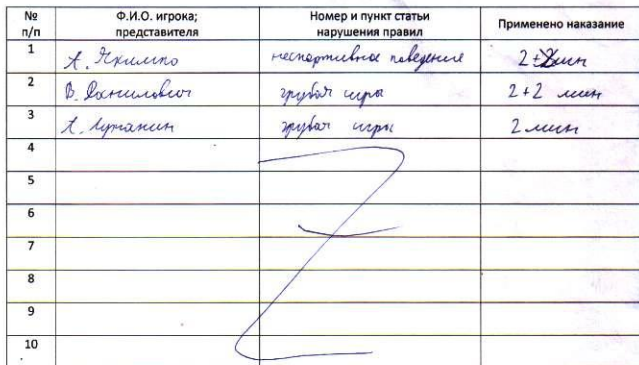 № п/п Ф.И.О. игрока; представителя Номер и пункт статьи нарушения правил Применено наказание
1 А. Якимко неспортивное поведение 2 мин
2 В. Данилович грубая игра 2+2 мин
3 А. грубая игра 2 мин
4
5
6
7
8
9
10